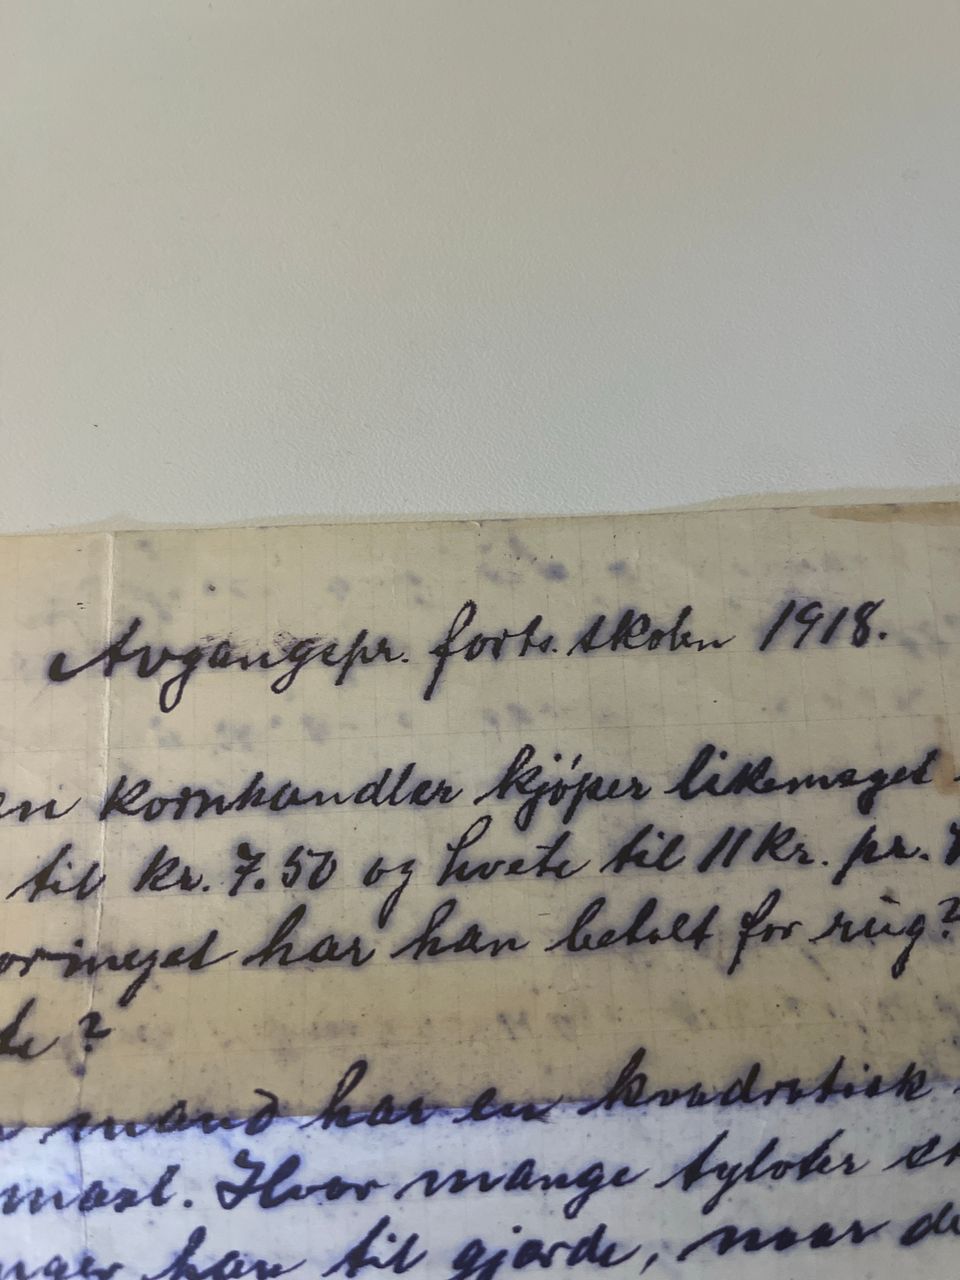 Avgangspr. forts. skolen 1918.
en kornhandler kjøper likemeget
til kr. 7.50 og hvete til 11 kr. pr.
ormeget har han betalt for rug?
te?
mand har en kvadratisk
maal. Hvor mange tylvter
han til gjærde, naar de